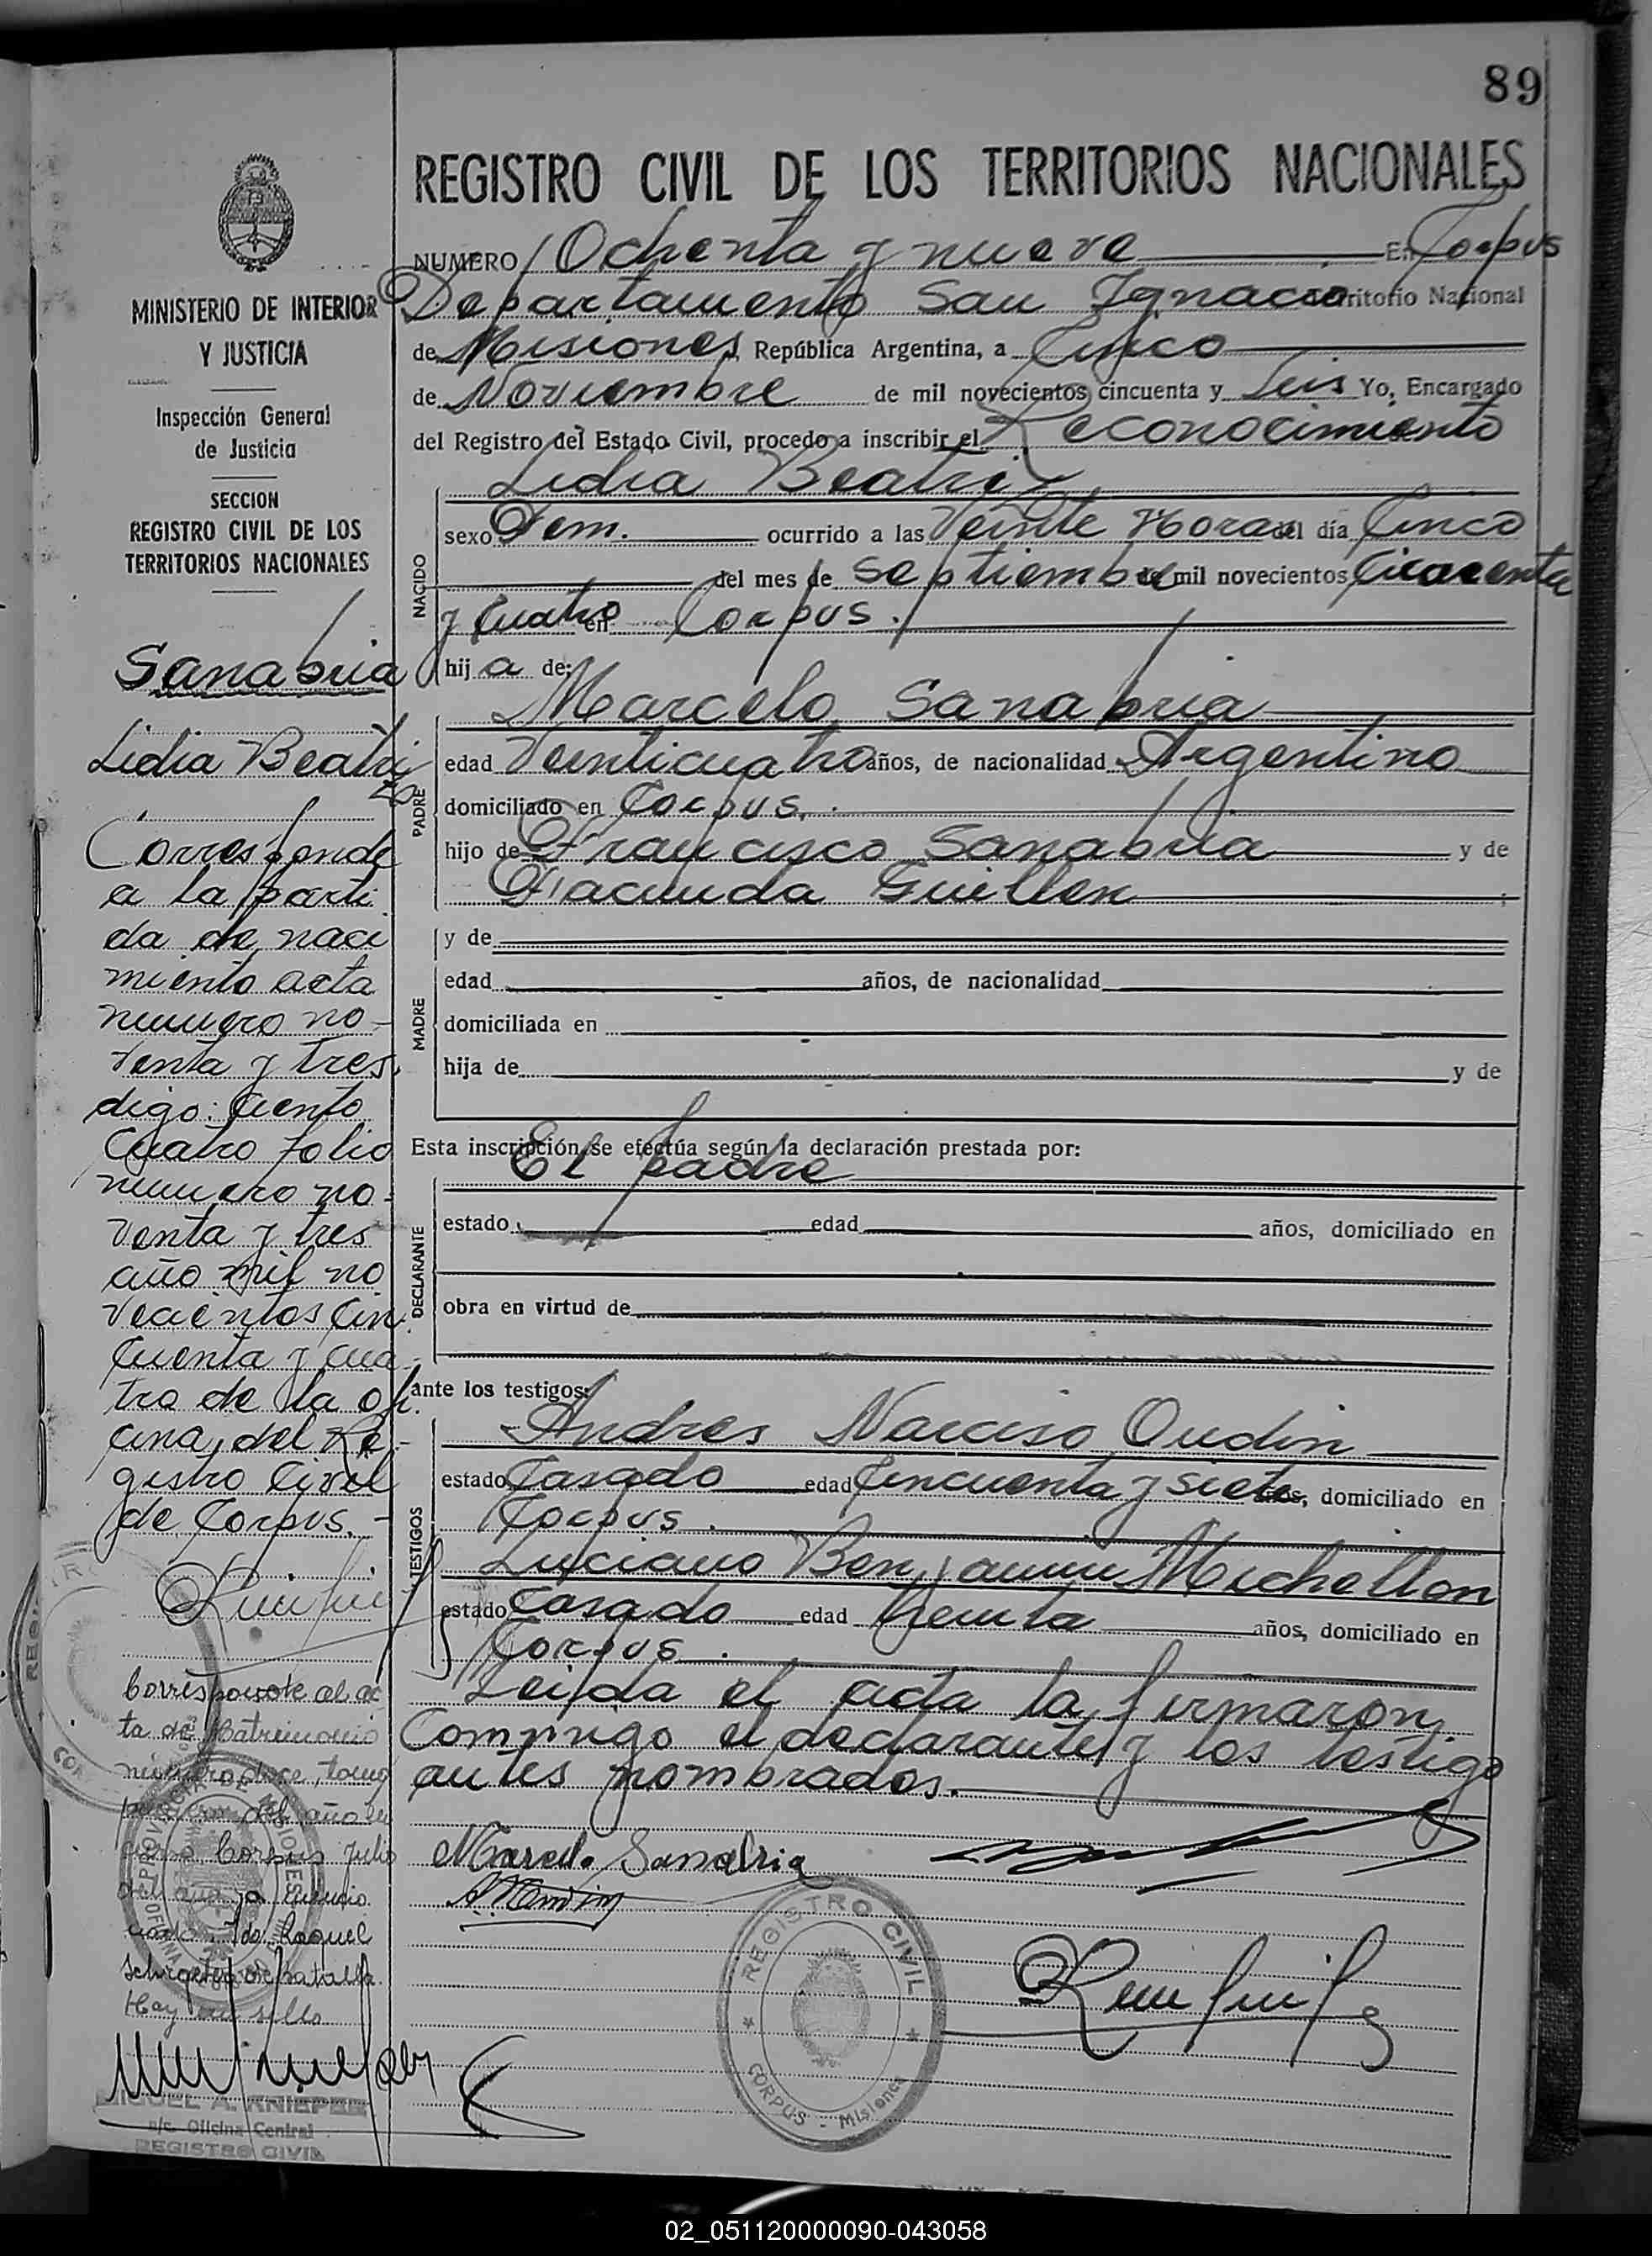 89
REGISTRO CIVIL DE LOS TERRITORIOS NACIONALES
NUMERO Ochenta y nueve En Corpus
Departamento San Ignacio Territorio Nacional
de Misiones, República Argentina, a Cinco
de Noviembre de mil novecientos cincuenta y Seis Yo, Encargado
del Registro del Estado Civil, procedo a inscribir el Reconocimiento
Lidia Beatriz
NACIDO
sexo Fem. ocurrido a las Veinte Horas del día Cinco
del mes de Septiembre de mil novecientos Cincuenta
y Cuatro en Corpus.
hija de:
PADRE
Marcelo Sanabria
edad Veinticuatro años, de nacionalidad Argentino
domiciliado en Corpus.
hijo de Francisco Sanabria y de
Facunda Guillen
MADRE
y de
edad años, de nacionalidad
domiciliada en
hija de y de
Esta inscripción se efectúa según la declaración prestada por:
El padre
DECLARANTE
estado edad años, domiciliado en
obra en virtud de
ante los testigos:
TESTIGOS
Andres Narciso Oudin
estado Casado edad Cincuenta y siete años, domiciliado en
Corpus.
Luciano Benjamin Michellon
estado Casado edad Treinta años, domiciliado en
Corpus.
Leida el acta la firmaron
Conmigo el declarante y los testigo
antes nombrados.
Marcelo Sanabria
REGISTRO CIVIL
CORPUS - Misiones
MINISTERIO DE INTERIOR
Y JUSTICIA
Inspección General
de Justicia
SECCION
REGISTRO CIVIL DE LOS
TERRITORIOS NACIONALES
Sanabria
Lidia Beatriz
Corresponde
a la parti
da de naci
miento acta
numero no-
venta y tres,
digo: Ciento
Cuatro folio
numero no-
venta y tres
año mil no
vecientos Cin
Cuenta y cua-
tro de la ofi.
cina del Re-
gistro Civil
de Corpus.-
Corresponde al ac
ta de Matrimonio
número doce, tomo
del año
Corpus Julio
Fdo. Raquel
de Batalla
Hay un sello
MIGUEL A. KNIEPER
a/c. Oficina Central
REGISTRO CIVIL
02_051120000090-043058